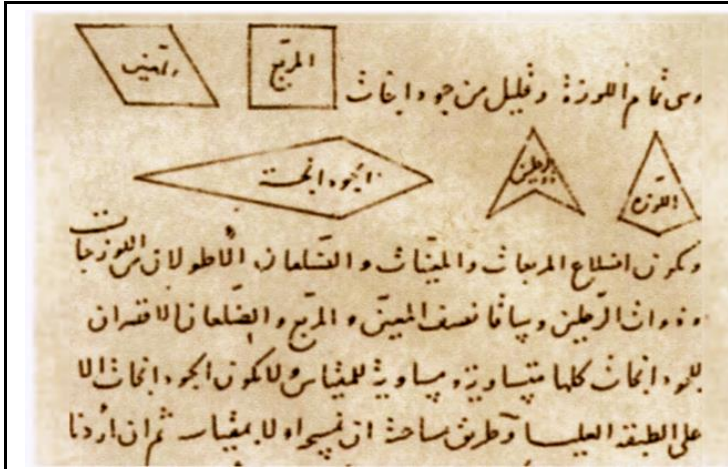 المعين المربع
تمام اللوزة وقليل من جودانجات
اللوزة الرجلين الجودانجة
وتكون اضلاع المربعات والمعينات والضلعان الاطولان من اللوزجات
وذوات الرجلين وساقا نصف المعين والمربع والضلعان الاقصران
للجودانجات كلها متساوية ومساوية للمقياس ولا تكون الجودانجات الا
على الطبقة العليا وطريق مساحته ان بمقياس ثم ان اردنا